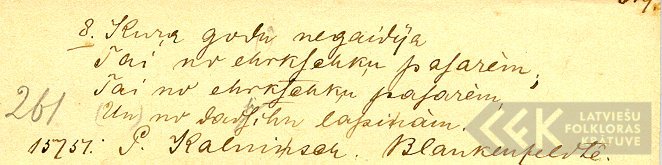 8. Kuŗa godu negaidija
Tai, no ehrkschku pasarèm;
Tai no ehrkschku pasarèm,
261 (Un) no dadsihu lapinàm.
15751. P. Kalnihsch. Blankenfeldtê.
LATVIEŠU
FOLKLORAS
KRĀTUVE